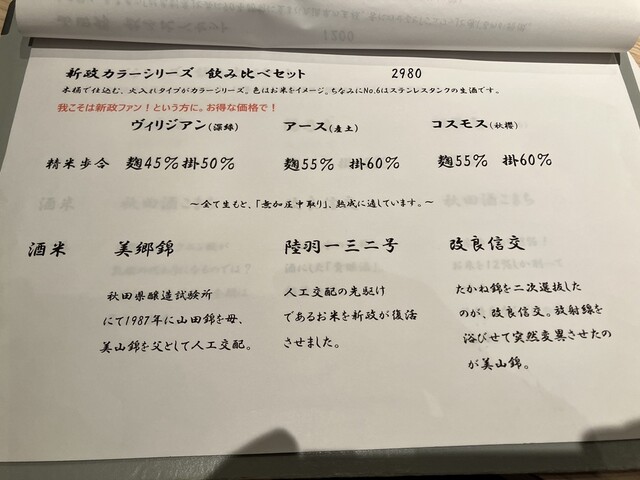 1200
新政カラーシリーズ 飲み比べセット 2980
木桶で仕込む、火入れタイプがカラーシリーズ。色はお米をイメージ。ちなみにNo.6はステンレスタンクの生酒です。
我こそは新政ファン！という方に。お得な価格で！
ヴィリジアン(深緑) アース(産土) コスモス(秋櫻)
精米歩合 麹45％掛50％ 麹55％ 掛60％ 麹55％ 掛60％
～全て生もと、「無加圧中取り」、熟成に適しています。～
酒米 美郷錦 陸羽一三二号 改良信交
秋田県醸造試験所
にて1987年に山田錦を母、
美山錦を父として人工交配。
人工交配の先駆け
であるお米を新政が復活
させました。
たかね錦を二次選抜した
のが、改良信交。放射線を
浴びせて突然変異させたの
が美山錦。